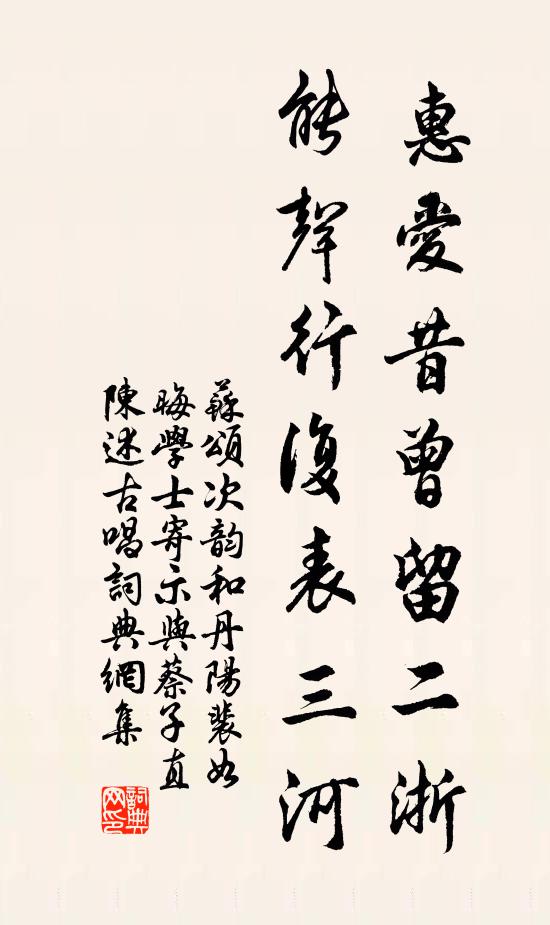 惠愛昔曾留二浙
能聲行復表三河
蘇頌次韵和丹陽裴如
晦學士寄示與蔡子直
陳述古唱詞典網集
詞典网印